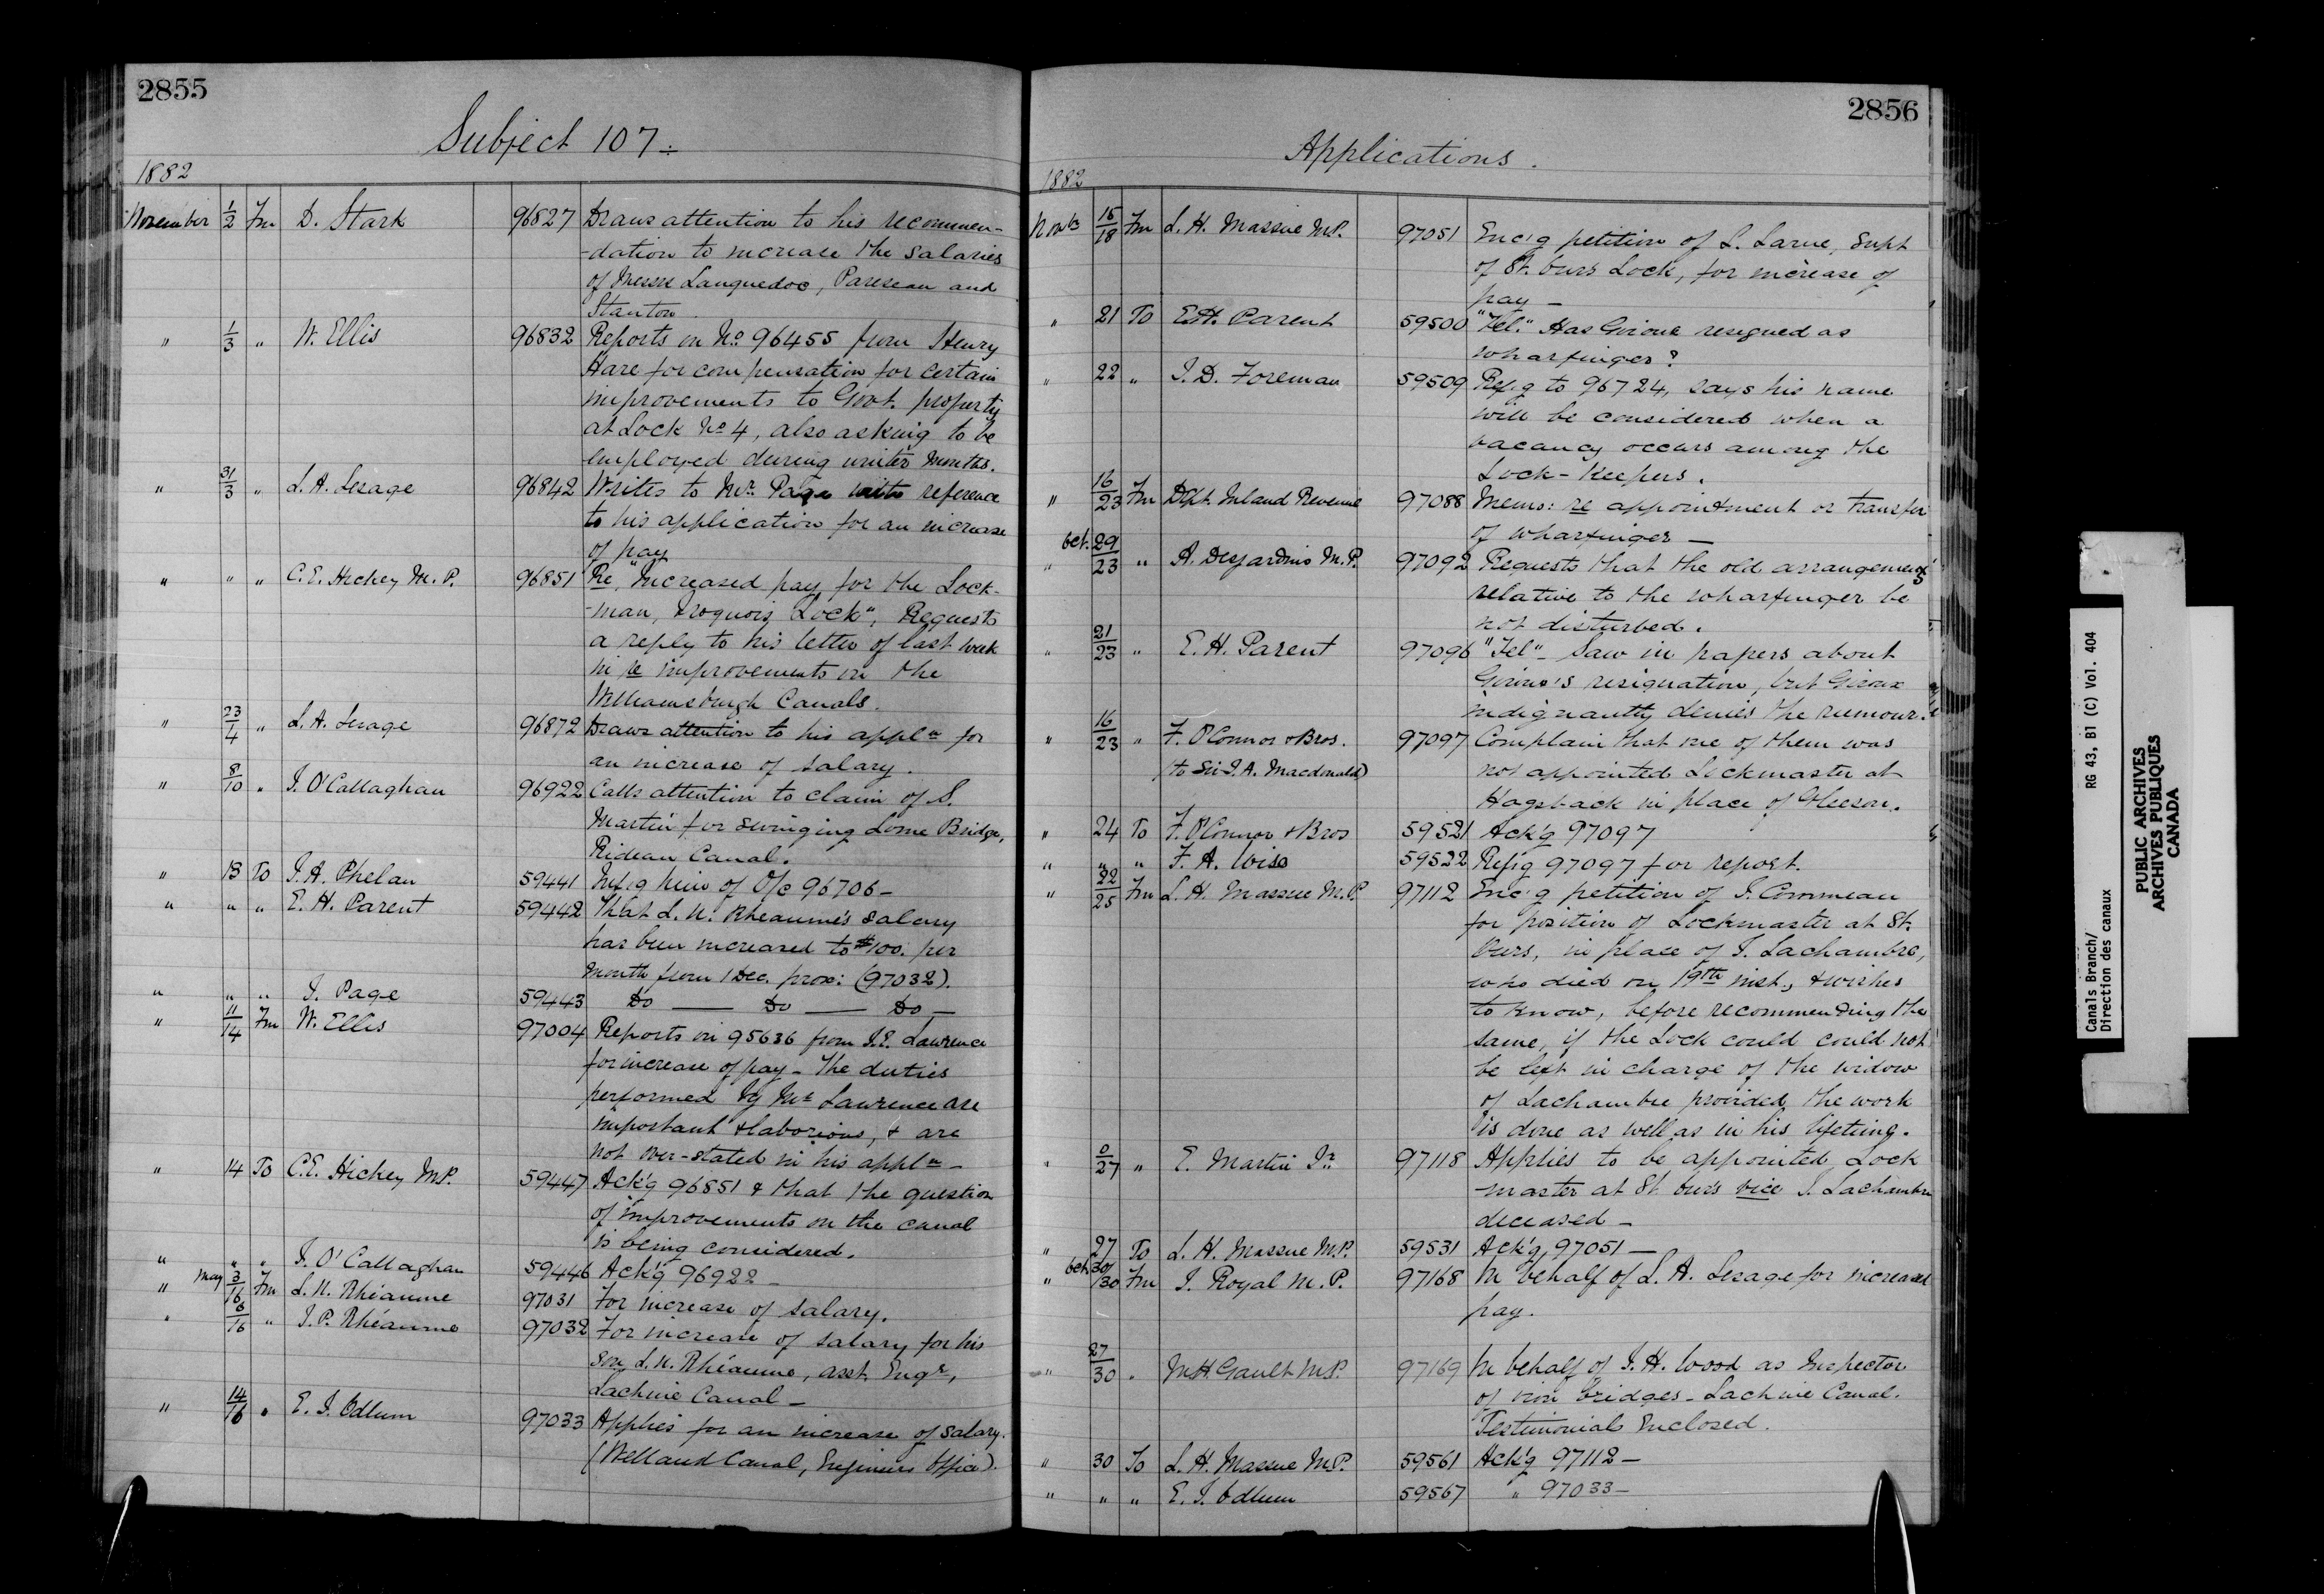 2855
Subject 107.
1882
November 1/2 Fm D. Stark 96827 Draws attention to his recommen-
-dation to increase the salaries
of Messrs Languedoc, Pareseau and
Stanton.
" 1/3 " W. Ellis 96832 Reports on No. 96455 from Henry
Hare for compensation for certain
improvements to Govt. property
at Lock No 4, also asking to be
employed during winter months.
" 31/3 " L. A. Lesage 96842 Writes to Mr. Page with reference
to his application for an increase
of pay
" " " C. E. Hickey M. P. 96851 Re "Increased pay for the Lock-
-man, Iroquois Lock", Requests
a reply to his letter of last week
in re improvements on the
Williamsburgh Canals.
" 23/4 " L. A. Lesage 96872 Draws attention to his appln for
an increase of salary.
" 8/10 " J. O'Callaghan 96922 Calls attention to claim of S.
Martin for swinging Lorne Bridge,
Rideau Canal.
" 13 To J. A. Phelan 59441 Inf'g him of O/c 96706 -
" " " E. H. Parent 59442 That L. N. Rheaume's salary
has been increased to $100. per
month from 1 Dec. prox: (97032).
" " " J. Page 59443 Do — Do — Do —
" 11/14 Fm W. Ellis 97004 Reports on 95636 from J. E. Lawrence
for increase of pay - The duties
performed by Mr Lawrence are
important & laborious, & are
not over-stated in his appln -
" 14 To C. E. Hickey M.P. 59447 Ack'g 96851 & that the question
of improvements on the canal
is being considered.
" " " J. O'Callaghan 59446 Ack'g 96922 -
" May 3/16 Fm L. N. Rhéaume 97031 For increase of salary.
" 6/16 " J. P. Rhéaume 97032 For increase of salary for his
son L. N. Rhéaume, asst. Engr,
Lachine Canal -
" 14/16 " E. J. Odlum 97033 Applies for an increase of salary.
(Welland Canal, Engineers Office).
2856
Applications.
1882
Novbr 15/18 Fm L. H. Massue M.P. 97051 Enc'g petition of L. Larue, Supt
of St. Ours Lock, for increase of
pay -
" 21 To E. H. Parent 59500 "Tel." Has Giroux resigned as
wharfinger?
" 22 " J. D. Foreman 59509 Ref'g to 96724, says his name
will be considered when a
vacancy occurs among the
Lock-Keepers.
" 16/23 Fm Dept. Inland Revenue 97088 Memo: re appointment or transfer
of wharfinger -
" Oct. 29/23 " A. Desjardins M. P. 97092 Requests that the old arrangements
relative to the wharfinger be
not disturbed.
" 21/23 " E. H. Parent 97096 "Tel" - Saw in papers about
Giroux's resignation, but Giroux
indignantly denies the rumour.
" 16/23 " F. O'Connor & Bros. 97097 Complain that one of them was
(to Sir J. A. Macdonald) not appointed Lockmaster at
Hogsback in place of Gleeson.
" 24 To F. O'Connor & Bros 59521 Ack'g 97097
" " " F. A. Wise 59522 Ref'g 97097 for report.
" 22/25 Fm L. H. Massue M.P. 97112 Enc'g petition of J. Commeau
for position of Lockmaster at St.
Ours, in place of J. Lachambre,
who died on 19th inst., & wishes
to know, before recommending the
same, if the Lock could could not
be left in charge of the widow
of Lachambre provided the work
is done as well as in his lifetime.
" 0/27 " E. Martin Jr 97118 Applies to be appointed Lock
-master at St. Ours vice J. Lachambre
deceased -
" 27 To L. H. Massue M.P. 59531 Ack'g 97051 —
" Oct. 30/30 Fm J. Royal M. P. 97168 In behalf of L. A. Lesage for increased
pay.
" 27/30 " M. H. Gault M.P. 97169 In behalf of J. H. Wood as Inspector
of iron bridges - Lachine Canal.
Testimonials Enclosed.
" 30 To L. H. Massue M.P. 59561 Ack'g 97112 —
" " " E. J. Odlum 59567 " 97033 —
Canals Branch/
Direction des canaux
RG 43, B1 (C) Vol. 404
PUBLIC ARCHIVES
ARCHIVES PUBLIQUES
CANADA